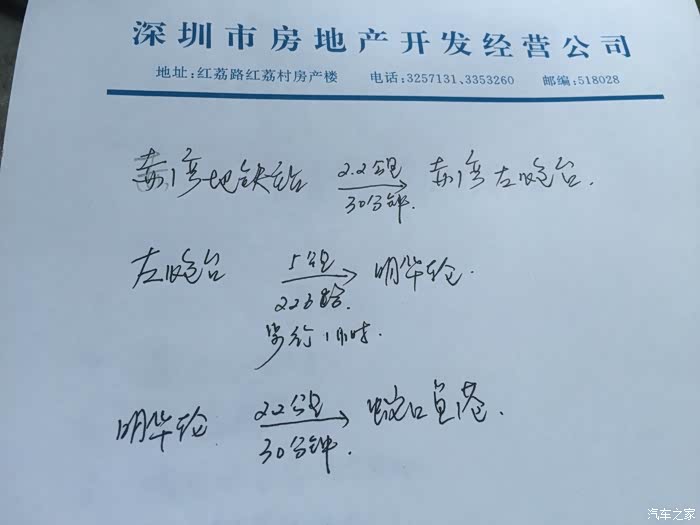 深圳市房地产开发经营公司
地址:红荔路红荔村房产楼 电话:3257131、3353260 邮编:518028
赤湾地铁站 2.2公里 30分钟 赤湾左炮台.
左炮台 5公里 226路. 明华轮.
步行1小时.
明华轮 2.2公里 30分钟. 蛇口渔港.
汽车之家